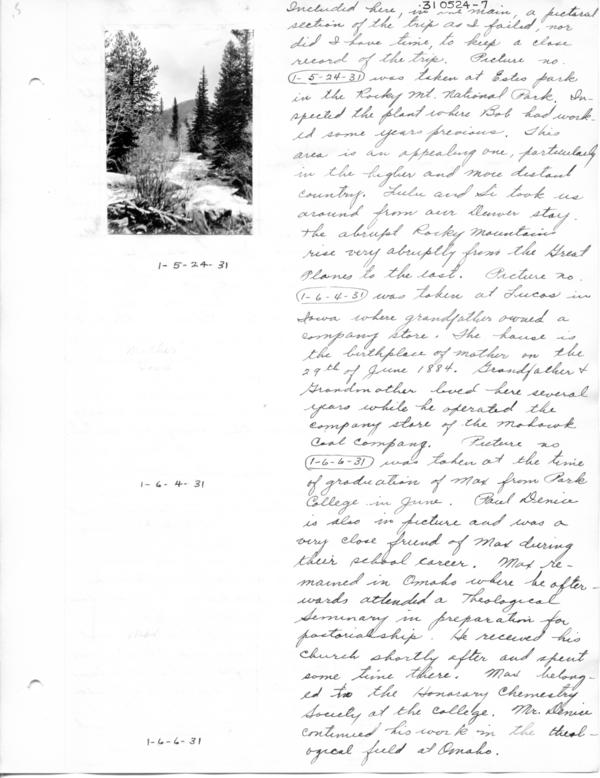 310524-7
Included here, in the main, a pictoral
section of the trip as I failed, nor
did I have time, to keep a close
record of the trip. Picture no.
1-5-24-31 was taken at Estes park
in the Rocky Mt. National Park. In-
spected the plant where Bob had work-
ed some years previous. This
area is an appealing one, particularly
in the higher and more distant
country. Lulu and Si took us
around from our Denver stay.
The abrupt Rocky Mountains
rise very abruptly from the Great
Planes to the east. Picture no.
1-6-4-31 was taken at Lucas in
Iowa where grandfather owned a
company store. The house is
the birthplace of mother on the
29th of June 1884. Grandfather +
Grandmother lived here several
years while he operated the
company store of the Mohawk
Coal Company. Picture no
1-6-6-31 was taken at the time
of graduation of Max from Park
College in June. Paul Denise
is also in picture and was a
very close friend of Max during
their school career. Max re-
mained in Omaho where he after-
wards attended a Theological
Seminary in preparation for
pastorialship. He received his
church shortly after and spent
some time there. Max belong-
ed to the Honorary Chemestry
Society at the college. Mr. Denise
continued his work in the theol-
ogical field at Omaho.
1-5-24-31
1-6-4-31
1-6-6-31